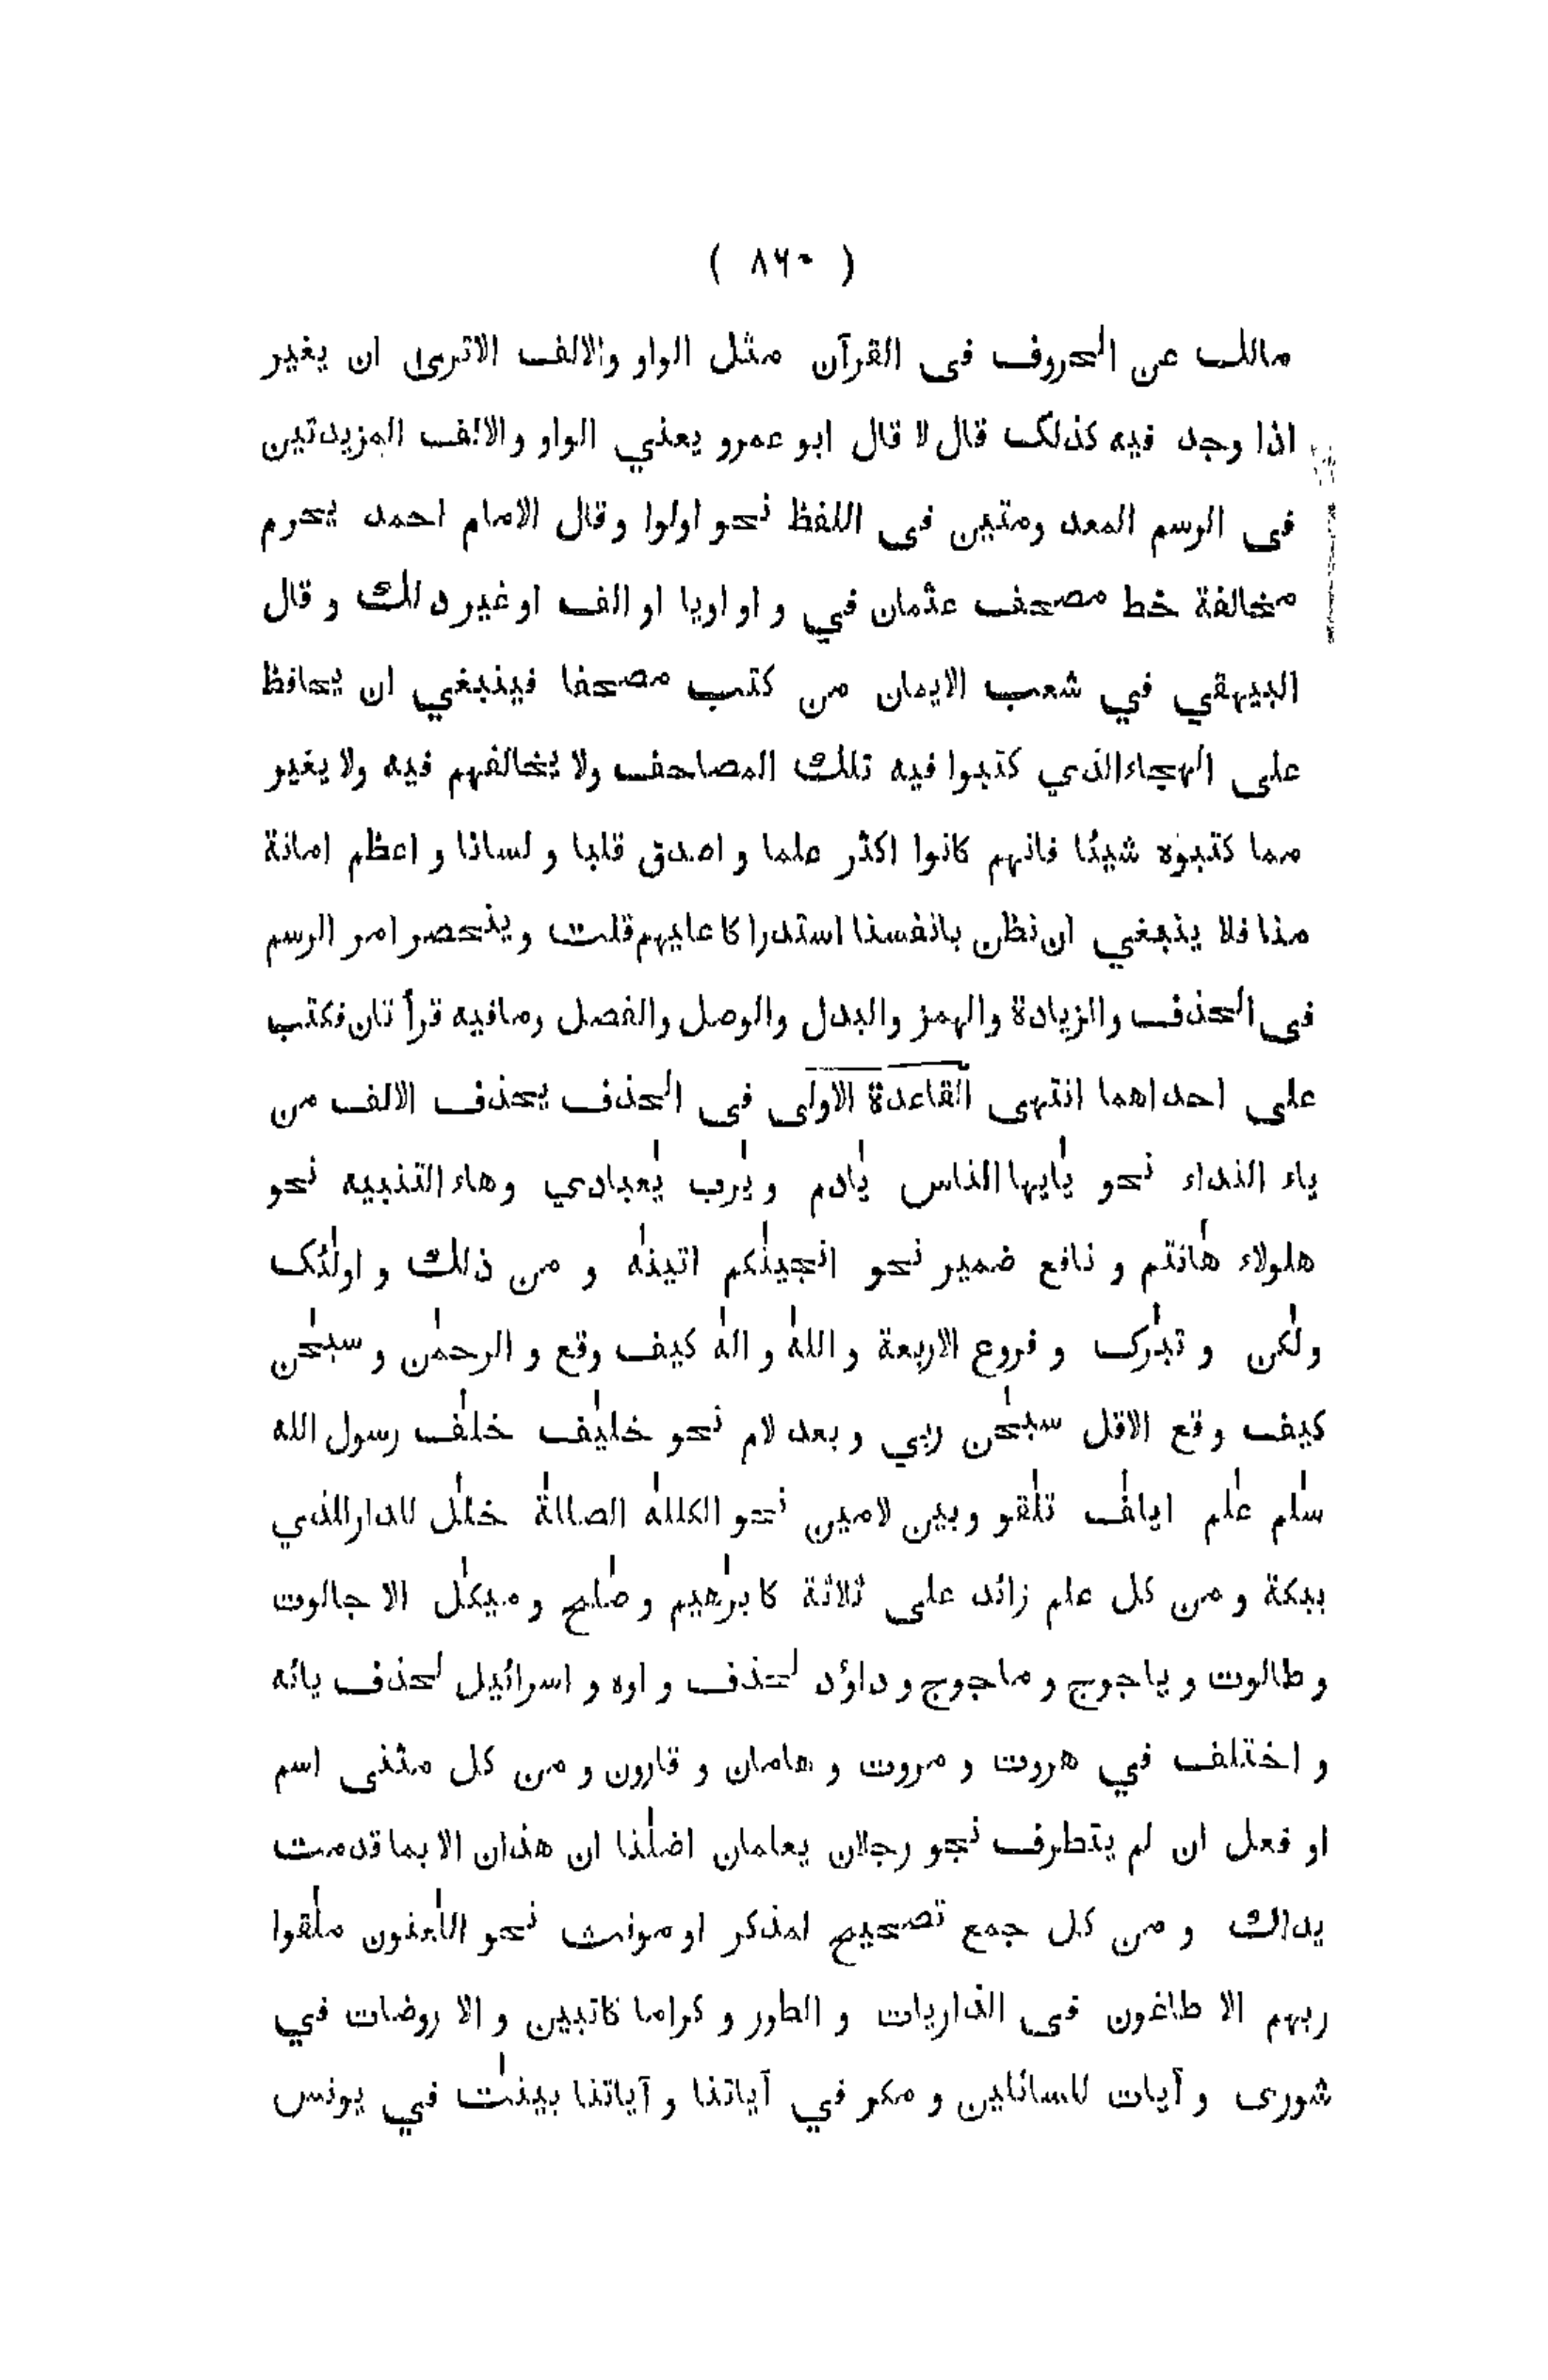 ( ٨٦٠ )
مالك عن الحروف فى القرآن مثل الواو والالف الاترى ان يغير
اذا وجد فيه كذلك قال لا قال ابو عمرو يعني الواو والالف المزيدتين
فى الرسم المعد ومتين فى اللفظ نحو اولوا وقال الامام احمد يحرم
مخالفة خط مصحف عثمان في واو اويا او الف او غير دلك وقال
البيهقي في شعب الايمان من كتب مصحفا فينبغي ان يحافظ
على الهجاء الذي كتبوا فيه تلك المصاحف ولا يخالفهم فيه ولا يغير
مما كتبوه شيئا فانهم كانوا اكثر علما و اصدق قلبا و لسانا و اعظم امانة
منا فلا ينبغي ان نظن بانفسنا استدراكا عليهم قلت وينحصر امر الرسم
فى الحذف والزيادة والهمز والبدل والوصل والفصل ومافيه قرأتان فكتب
على احداهما انتهى القاعدة الاولى فى الحذف يحذف الالف من
ياء النداء نحو يٰايها الناس يٰادم ويٰرب يٰعبادي وهاء التنبيه نحو
هلولاء هٰانتم و نافع ضمير نحو انجينٰكم اتينٰه و من ذلك و اولٰئك
ولٰكن و تبٰرك و فروع الاربعة و اللٰه و الٰه كيف وقع و الرحمٰن و سبٰحن
كيف وقع الاقل سبحٰن ربي و بعد لام نحو خليٰف خلٰف رسول الله
سلٰم علٰم ايلٰف تلٰقو وبين لامين نحو الكللٰه الضللٰة خلٰل للدار للذي
ببكة و من كل علم زائد على ثلاثة كابرٰهيم و صٰلح و ميكٰل الا جالوت
و طالوت و ياجوج و ماجوج و داؤد لحذف واوه و اسرائيل لحذف يائه
و اختلف في هروت و مروت و هامان و قارون و من كل مثنى اسم
او فعل ان لم يتطرف نحو رجلان يعلمان اضلٰنا ان هذان الا بما قدمت
يداك و من كل جمع تصحيح لمذكر او مونث نحو اللٰعنون ملٰقوا
ربهم الا طاغون فى الذاريات و الطور و كراما كاتبين و الا روضات في
شورى و آيات للسائلين و مكر في آياتنا و آياتنا بينٰت في يونس